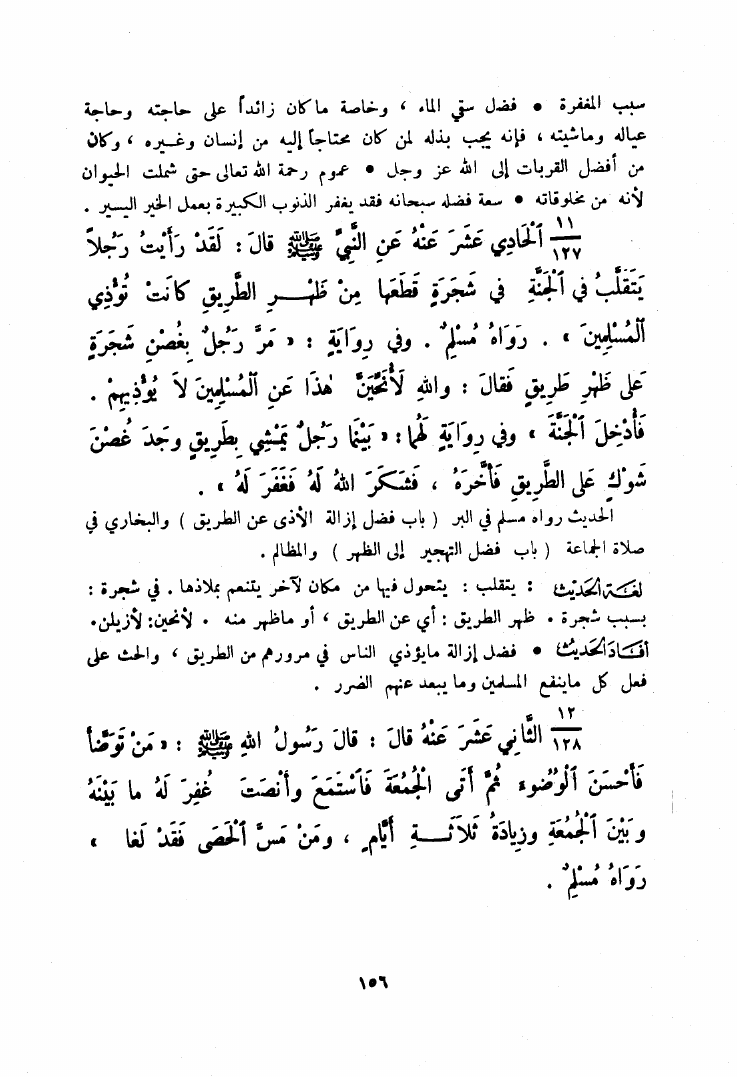 سبب المغفرة • فضل سقي الماء ، وخاصة ماكان زائداً على حاجته وحاجة
عياله وماشيته ، فإنه يجب بذله لمن كان محتاجاً إليه من إنسان وغيره ، وكان
من أفضل القربات إلى الله عز وجل • عموم رحمة الله تعالى حتى شملت الحيوان
لأنه من مخلوقاته • سعة فضله سبحانه فقد يغفر الذنوب الكبيرة بعمل الخير اليسير .
١١
١٢٧ اَلْحَادِي عَشَرَ عَنْهُ عَنِ النَّبِيِّ ﷺ قالَ : لَقَدْ رَأَيْتُ رَجُلاً
يَتَقَلَّبُ في اَلْجَنَّةِ في شَجَرَةٍ قَطَعَها مِنْ ظَهْرِ الطَّرِيقِ كانَتْ تُؤْذِي
اَلْمُسْلِمِينَ » . رَوَاهُ مُسْلِمٌ . وفي رِوَايَةٍ : « مَرَّ رَجُلٌ بِغُصْنِ شَجَرَةٍ
عَلى ظَهْرِ طَرِيقٍ فَقالَ : واللهِ لَأُنَحِّيَنَّ هٰذَا عَنِ اَلْمُسْلِمِينَ لاَ يُؤْذِيهِمْ .
فَأُدْخِلَ اَلْجَنَّةَ » وفي رِوَايَةٍ لَهُما : « بَيْنَما رَجُلٌ يَمْشِي بِطَرِيقٍ وجَدَ غُصْنَ
شَوْكٍ عَلى الطَّرِيقِ فَأَخَّرَهُ ، فَشَكَرَ اللهُ لَهُ فَغَفَرَ لَهُ » .
الحديث رواه مسلم في البر ( باب فضل إزالة الأذى عن الطريق ) والبخاري في
صلاة الجماعة ( باب فضل التهجير إلى الظهر ) والمظالم .
لغة الحديث : يتقلب : يتحول فيها من مكان لآخر يتنعم بملاذها . في شجرة :
بسبب شجرة . ظهر الطريق : أي عن الطريق ، أو ماظهر منه . لأنحين : لأزيلن .
أفاد الحديث • فضل إزالة مايؤذي الناس في مرورهم من الطريق ، والحث على
فعل كل ماينفع المسلمين وما يبعد عنهم الضرر .
١٢
١٢٨ الثَّاني عَشَرَ عَنْهُ قالَ : قالَ رَسُولُ اللهِ ﷺ : « مَنْ تَوَضَّأَ
فَأَحْسَنَ اَلْوُضُوءَ ثُمَّ أَتَى الْجُمُعَةَ فَاَسْتَمَعَ وأَنْصَتَ غُفِرَ لَهُ ما بَيْنَهُ
وبَيْنَ اَلْجُمُعَةِ وزِيادَةُ ثَلاَثَةِ أَيَّامٍ ، ومَنْ مَسَّ اَلْحَصَى فَقَدْ لَغا »
رَوَاهُ مُسْلِمٌ .
١٥٦